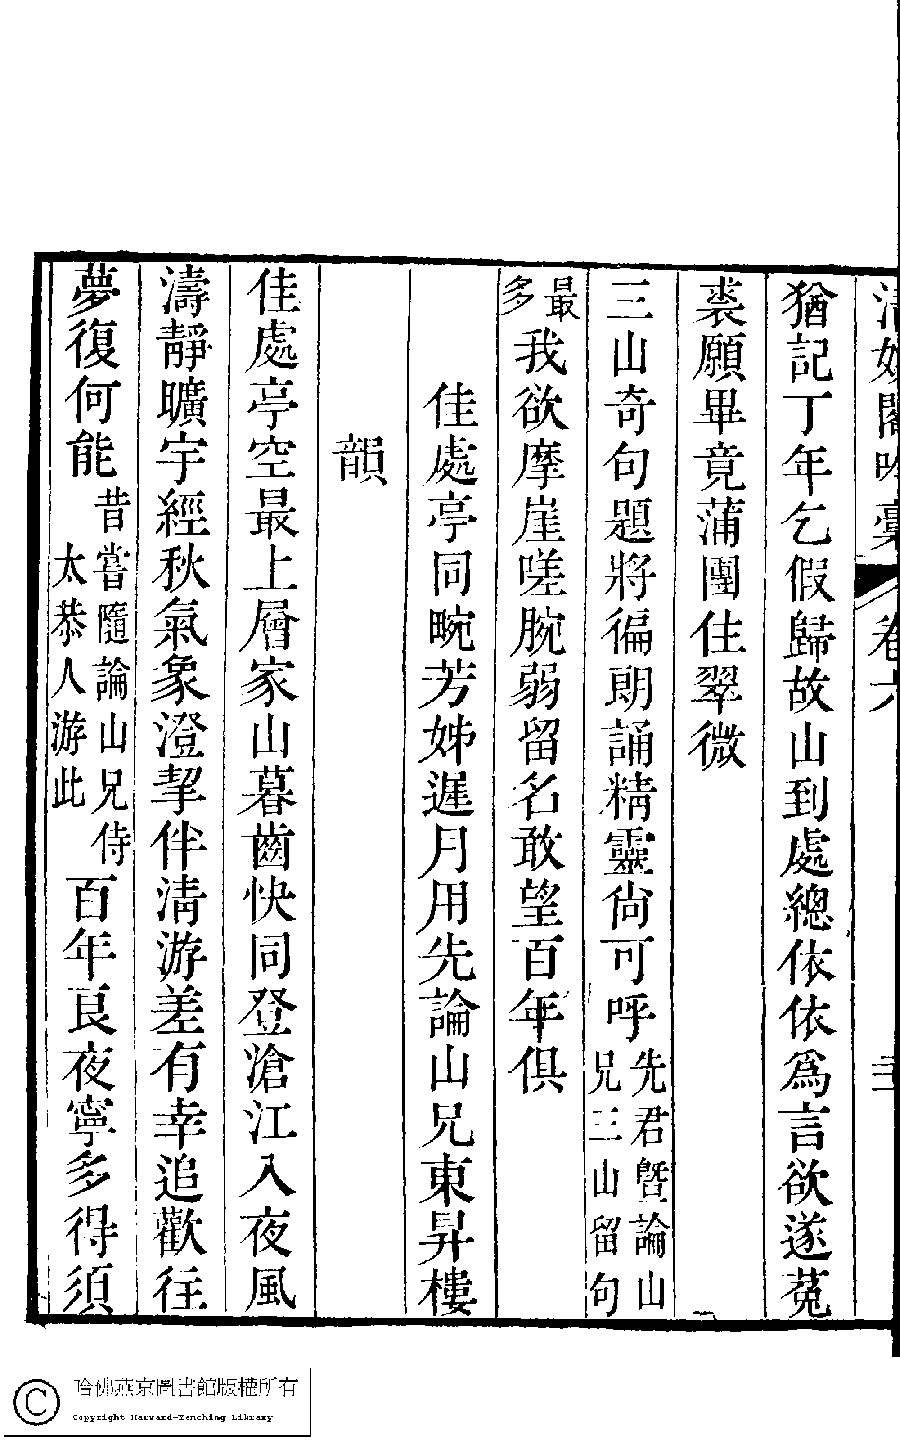 清娛閣吟藁 卷六
猶記丁年乞假歸故山到處總依依爲言欲遂菟
裘願畢竟蒲團住翠微
三山奇句題將徧朗誦精靈尙可呼先君曁論山兄三山留句
最多我欲摩崖嗟腕弱留名敢望百年俱
佳處亭同畹芳姊遲月用先論山兄東昇樓
韻
佳處亭空最上層家山暮齒快同登滄江入夜風
濤靜曠宇經秋氣象澄挈伴淸游差有幸追歡往
夢復何能昔嘗隨論山兄侍太恭人游此百年良夜寧多得須
哈佛燕京圖書館版權所有
Copyright Harvard-Yenching Library